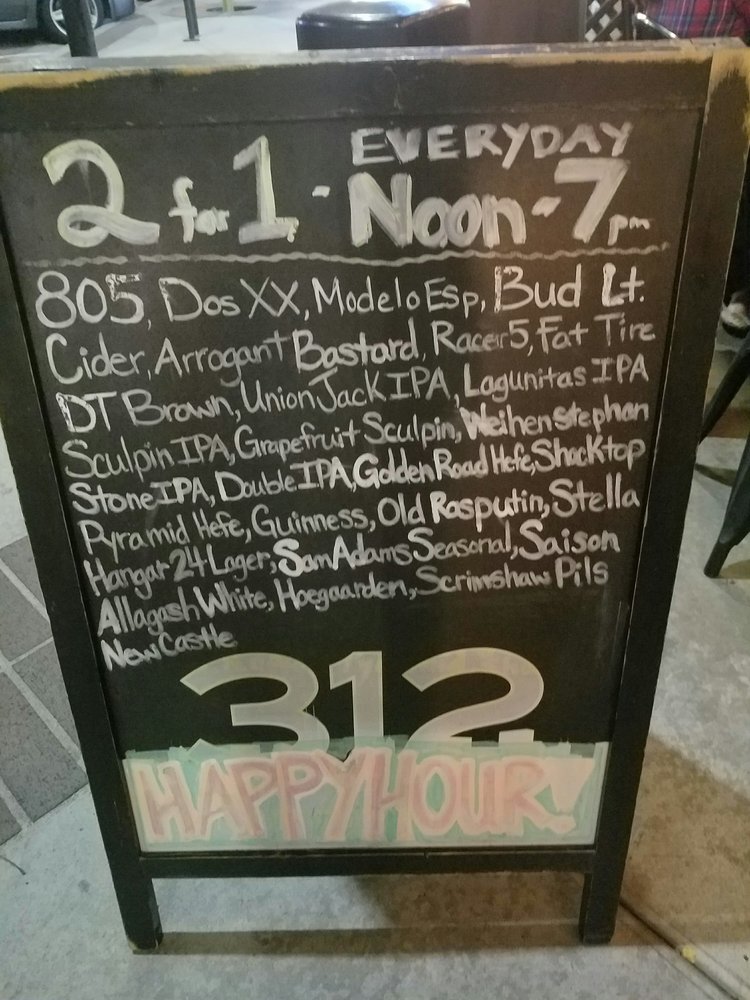 EVERYDAY
2 for 1 - Noon-7pm
805, Dos XX, Modelo Esp, Bud Lt.
Cider, Arrogant Bastard, Racer 5, Fat Tire
DT Brown, Union Jack IPA, Lagunitas IPA
Sculpin IPA, Grapefruit Sculpin, Weihenstephan
Stone IPA, Double IPA, Golden Road Hefe, Shocktop
Pyramid Hefe, Guinness, Old Rasputin, Stella
Hangar 24 Lager, Sam Adams Seasonal, Saison
Allagash White, Hoegaarden, Scrimshaw Pils
New Castle
312
HAPPY HOUR!